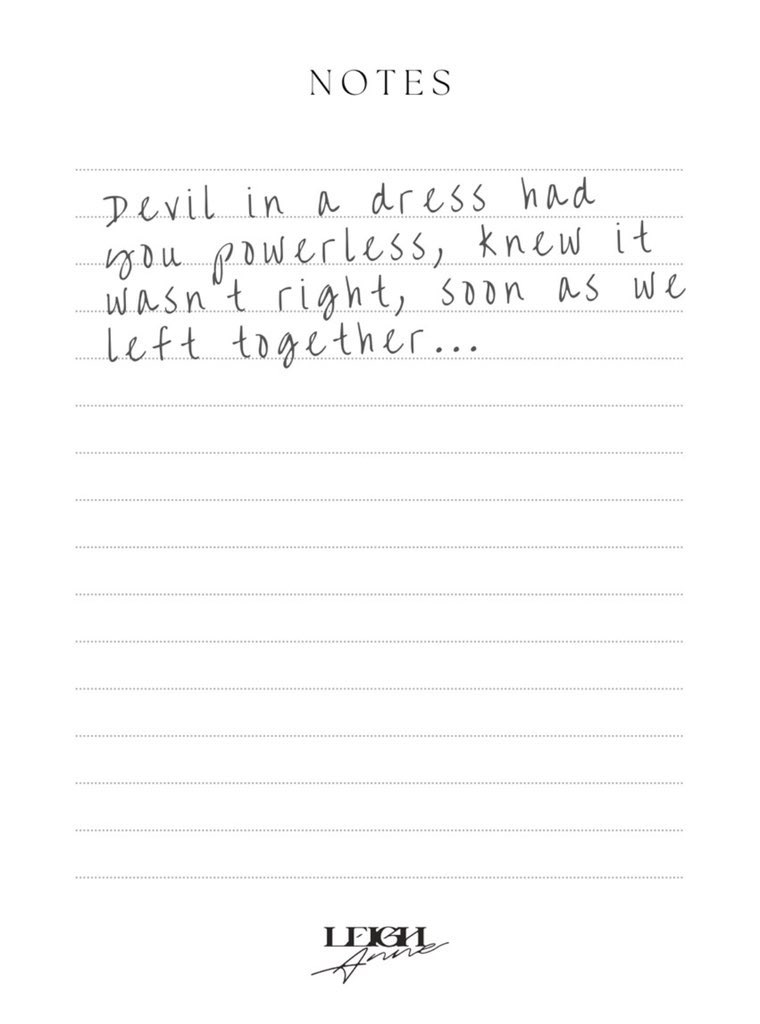 NOTES
Devil in a dress had
you powerless, knew it
wasn't right, soon as we
left together...
LEIGH
Anne